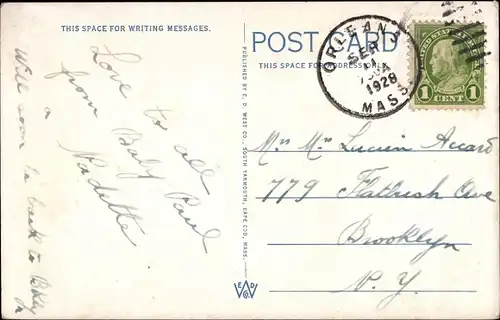 THIS SPACE FOR WRITING MESSAGES.
Love to all
from Baby Paul
a
Nadette
Will soon be back to Bkly
PUBLISHED BY E. D. WEST CO., SOUTH YARMOUTH, CAPE COD, MASS.
POST CARD
THIS SPACE FOR ADDRESS ONLY.
ORLEANS
SEP
1928
MASS.
UNITED STATES POSTAGE
1 1
CENT
Mr Mrs Lucien Accard
779 Flatbush Ave
Brooklyn
N. Y.